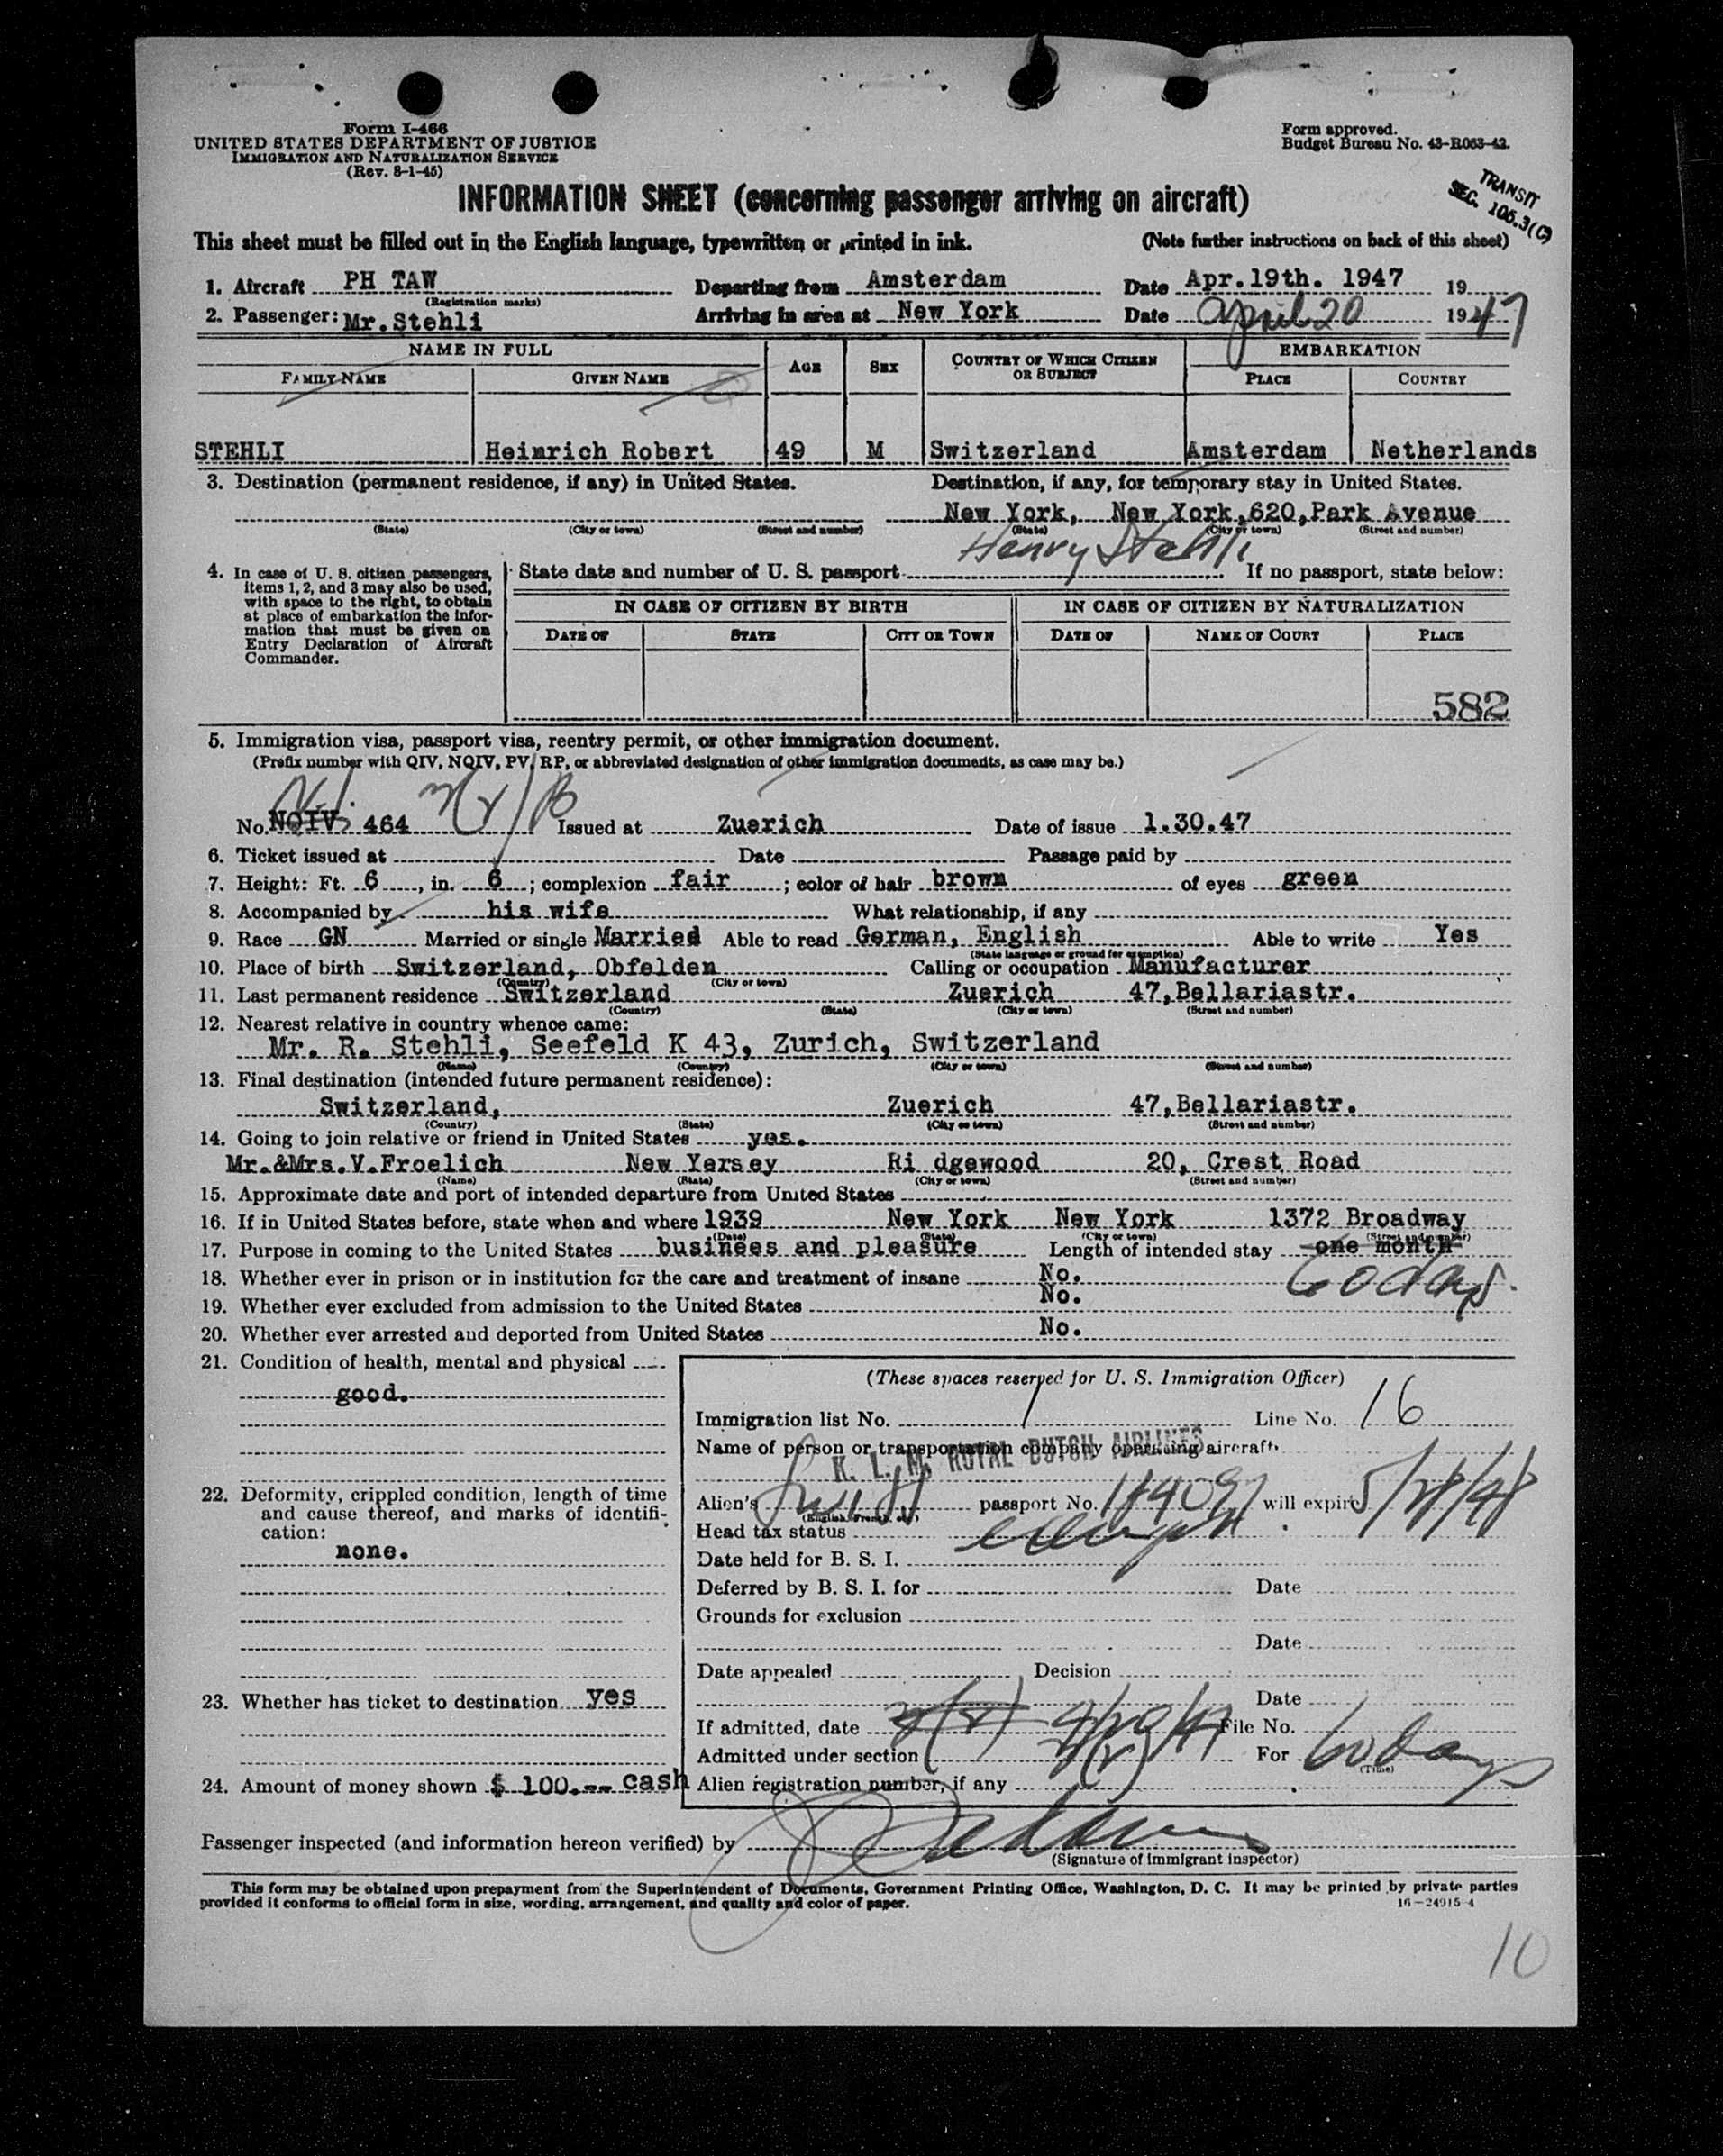 Form I-466
UNITED STATES DEPARTMENT OF JUSTICE
IMMIGRATION AND NATURALIZATION SERVICE
(Rev. 8-1-45)
Form approved.
Budget Bureau No. 43-R053-42.
TRANSIT
SEC. 106.3(C)
INFORMATION SHEET (concerning passenger arriving on aircraft)
This sheet must be filled out in the English language, typewritten or printed in ink. (Note further instructions on back of this sheet)
1. Aircraft PH TAW Departing from Amsterdam Date Apr.19th. 1947 19
(Registration marks)
2. Passenger: Mr.Stehli Arriving in area at New York Date April 20 1947
NAME IN FULL AGE SEX COUNTRY OF WHICH CITIZEN OR SUBJECT EMBARKATION
FAMILY NAME GIVEN NAME PLACE COUNTRY
STEHLI Heinrich Robert 49 M Switzerland Amsterdam Netherlands
3. Destination (permanent residence, if any) in United States. Destination, if any, for temporary stay in United States.
New York, New York,620,Park Avenue
(State) (City or town) (Street and number) (State) (City or town) (Street and number)
Henry Stehli
4. In case of U. S. citizen passengers, items 1, 2, and 3 may also be used, with space to the right, to obtain at place of embarkation the information that must be given on Entry Declaration of Aircraft Commander.
State date and number of U. S. passport If no passport, state below:
IN CASE OF CITIZEN BY BIRTH IN CASE OF CITIZEN BY NATURALIZATION
DATE OF STATE CITY OR TOWN DATE OF NAME OF COURT PLACE
582
5. Immigration visa, passport visa, reentry permit, or other immigration document.
(Prefix number with QIV, NQIV, PV, RP, or abbreviated designation of other immigration documents, as case may be.)
No. NQIV 464 Issued at Zuerich Date of issue 1.30.47
6. Ticket issued at Date Passage paid by
7. Height: Ft. 6, in. 6; complexion fair; color of hair brown of eyes green
8. Accompanied by his wife What relationship, if any
9. Race GN Married or single Married Able to read German, English Able to write Yes
(State language or ground for exemption)
10. Place of birth Switzerland, Obfelden Calling or occupation Manufacturer
(Country) (City or town)
11. Last permanent residence Switzerland Zuerich 47,Bellariastr.
(Country) (State) (City or town) (Street and number)
12. Nearest relative in country whence came:
Mr. R. Stehli, Seefeld K 43, Zurich, Switzerland
(Name) (Country) (City or town) (Street and number)
13. Final destination (intended future permanent residence):
Switzerland, Zuerich 47,Bellariastr.
(Country) (State) (City or town) (Street and number)
14. Going to join relative or friend in United States yes.
Mr.&Mrs.V.Froelich New Yersey Ri dgewood 20, Crest Road
(Name) (State) (City or town) (Street and number)
15. Approximate date and port of intended departure from United States
16. If in United States before, state when and where 1939 New York New York 1372 Broadway
(Date) (State) (City or town) (Street and number)
17. Purpose in coming to the United States businees and pleasure Length of intended stay one month
60 days.
18. Whether ever in prison or in institution for the care and treatment of insane No.
19. Whether ever excluded from admission to the United States No.
20. Whether ever arrested and deported from United States No.
21. Condition of health, mental and physical
good.
22. Deformity, crippled condition, length of time and cause thereof, and marks of identification:
none.
23. Whether has ticket to destination yes
24. Amount of money shown $ 100.-- cash
(These spaces reserved for U. S. Immigration Officer)
Immigration list No. 1 Line No. 16
Name of person or transportation company operating aircraft
K. L. M. ROYAL DUTCH AIRLINES
Alien's Swiss passport No. will expire 5/28/48
(English, French, etc.)
Head tax status exempt
Date held for B. S. I.
Deferred by B. S. I. for Date
Grounds for exclusion
Date
Date appealed Decision
Date
If admitted, date 4/20/47 File No.
Admitted under section For 60 days
(Time)
Alien registration number, if any
Passenger inspected (and information hereon verified) by
(Signature of immigrant inspector)
This form may be obtained upon prepayment from the Superintendent of Documents, Government Printing Office, Washington, D. C. It may be printed by private parties
provided it conforms to official form in size, wording, arrangement, and quality and color of paper.
16-24915-4
10